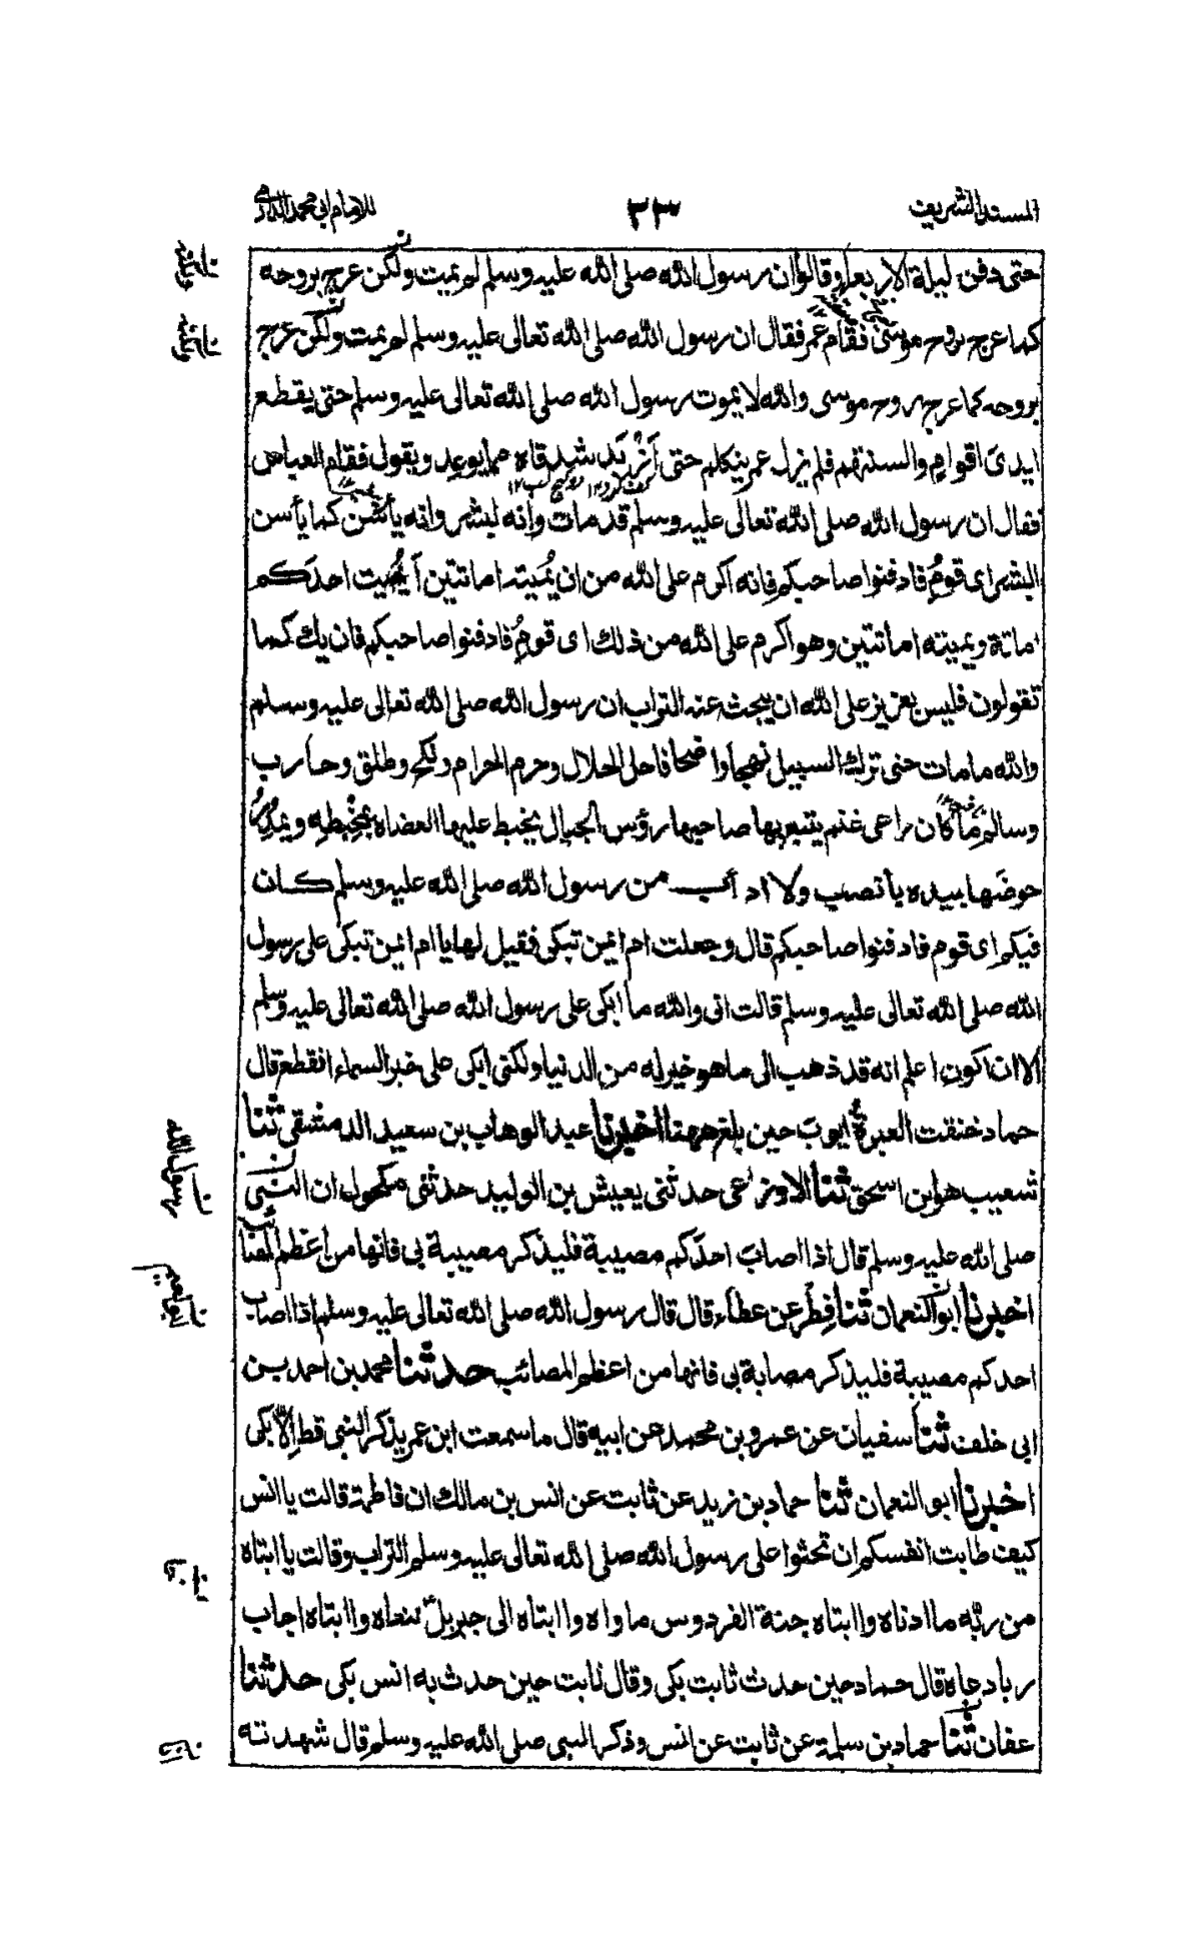 المسند الشريف ٣٣ للامام ابی محمد الدارمی
حتى دفن ليلة الاربعاء وقالوا ان رسول الله صلى الله عليه وسلم لم يمت ولكن عرج بروحه
كما عرج بروح موسى فقام عمر فقال ان رسول الله صلى الله تعالى عليه وسلم لم يمت ولكن عرج
بروحه كما عرج بروح موسى والله لا يموت رسول الله صلى الله تعالى عليه وسلم حتى يقطع
ايدى اقوام والسنتهم فلم يزل عمر يتكلم حتى ازبد شدقاه مما يوعد ويقول فقام العباس
فقال ان رسول الله صلى الله تعالى عليه وسلم قد مات وانه لبشر وانه يأسن كما يأسن
البشر اى قوم فادفنوا صاحبكم فانه اكرم على الله من ان يميته اماتتين أيميت احدكم
اماتة ويميته اماتتين وهو اكرم على الله من ذلك اى قوم فادفنوا صاحبكم فان يك كما
تقولون فليس بعزيز على الله ان يبحث عنه التراب ان رسول الله صلى الله تعالى عليه وسلم
والله ما مات حتى ترك السبيل نهجا واضحا فاحل الحلال وحرم الحرام ونكح وطلق وحارب
وسالم ما كان راعى غنم يتبع بها صاحبها رؤس الجبال يخبط عليها العضاه بمخبطه ويمدر
حوضها بيده بأنصب ولا ادأب من رسول الله صلى الله عليه وسلم كان
فيكم اى قوم فادفنوا صاحبكم قال وجعلت ام ايمن تبكى فقيل لها يا ام ايمن تبكى على رسول
الله صلى الله تعالى عليه وسلم قالت انى والله ما ابكى على رسول الله صلى الله تعالى عليه وسلم
الا ان اكون اعلم انه قد ذهب الى ما هو خير له من الدنيا ولكنى ابكى على خبر السماء انقطع قال
حماد خنقت العبرة ايوب حين بلغ ههنا اخبرنا عبد الوهاب بن سعيد الدمشقى ثنا
شعيب هو ابن اسحق ثنا الاوزاعى حدثنى يعيش بن الوليد حدثنى مكحول ان النبى
رسول الله
صلى الله عليه وسلم قال اذا اصاب احدكم مصيبة فليذكر مصيبة بى فانها من اعظم المصائب
اخبرنا ابو النعمان ثنا فطر عن عطاء قال قال رسول الله صلى الله تعالى عليه وسلم اذا اصاب
ابو نعيم
احدكم مصيبة فليذكر مصابة بى فانها من اعظم المصائب حدثنا محمد بن احمد بن
ابى خلف ثنا سفيان عن عمرو بن محمد عن ابيه قال ما سمعت ابن عمر يذكر النبى قط الا بكى
اخبرنا ابو النعمان ثنا حماد بن زيد عن ثابت عن انس بن مالك ان فاطمة قالت يا انس
كيف طابت انفسكم ان تحثوا على رسول الله صلى الله تعالى عليه وسلم التراب وقالت يا ابتاه
من ربه ما ادناه وا ابتاه جنة الفردوس ماواه وا ابتاه الى جبريل ننعاه وا ابتاه اجاب
ربا دعاه قال حماد حين حدث ثابت بكى وقال ثابت حين حدث به انس بكى حدثنا
عفان ثنا حماد بن سلمة عن ثابت عن انس وذكر النبى صلى الله عليه وسلم قال شهدته